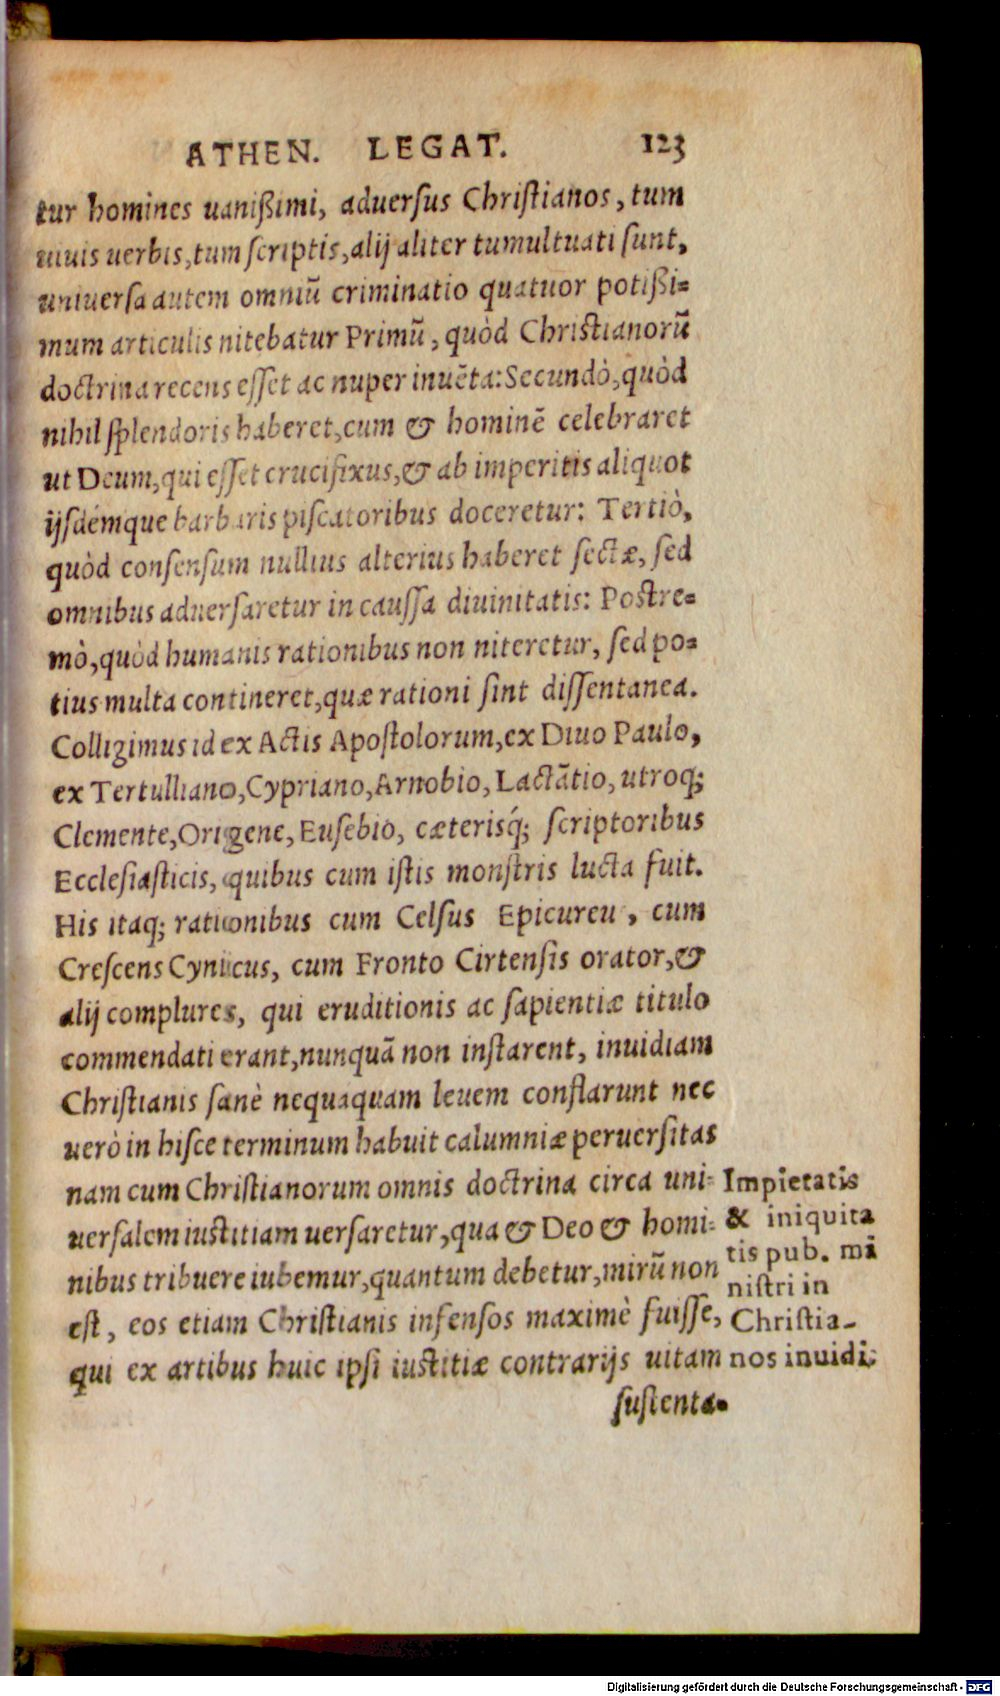 ATHEN. LEGAT. 123
tur homines uanißimi, aduersus Christianos, tum
uiuis uerbis, tum scriptis, alij aliter tumultuati sunt,
uniuersa autem omniũ criminatio quatuor potißi=
mum articulis nitebatur Primũ, quòd Christianorũ
doctrina recens esset ac nuper inuẽta: Secundò, quòd
nihil splendoris haberet, cum & hominẽ celebraret
ut Deum, qui esset crucifixus, & ab imperitis aliquot
ijsdémque barbaris piscatoribus doceretur: Tertiò,
quòd consensum nullius alterius haberet sectæ, sed
omnibus aduersaretur in caussa diuinitatis: Postre=
mò, quòd humanis rationibus non niteretur, sed po=
tius multa contineret, quæ rationi sint dissentanea.
Colligimus id ex Actis Apostolorum, ex Diuo Paulo,
ex Tertulliano, Cypriano, Arnobio, Lactãtio, utroq;
Clemente, Origene, Eusebio, cæterisq́; scriptoribus
Ecclesiasticis, quibus cum istis monstris lucta fuit.
His itaq; rationibus cum Celsus Epicureu, cum
Crescens Cynicus, cum Fronto Cirtensis orator, &
alij complures, qui eruditionis ac sapientiæ titulo
commendati erant, nunquã non instarent, inuidiam
Christianis sanè nequaquam leuem conflarunt nec
uerò in hisce terminum habuit calumniæ peruersitas
nam cum Christianorum omnis doctrina circa uni=
uersalem iustitiam uersaretur, qua & Deo & homi=
nibus tribuere iubemur, quantum debetur, mirũ non
est, eos etiam Christianis infensos maximè fuisse,
qui ex artibus huic ipsi iustitiæ contrarijs uitam
sustenta=
Impietatis
& iniquita
tis pub. mi
nistri in
Christia-
nos inuidi.
Digitalisierung gefördert durch die Deutsche Forschungsgemeinschaft - DFG